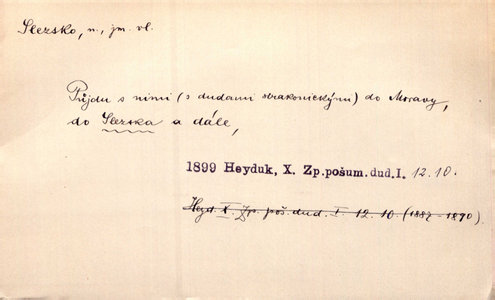 Slezsko, n., jm. vl.
Půjdu s nimi (s dudami strakonickými) do Moravy,
do Slezska a dále,
1899 Heyduk, X. Zp.pošum.dud.I. 12.10.
Heyd. X. Zp. poš. dud. I. 12. 10. (1887-1890).